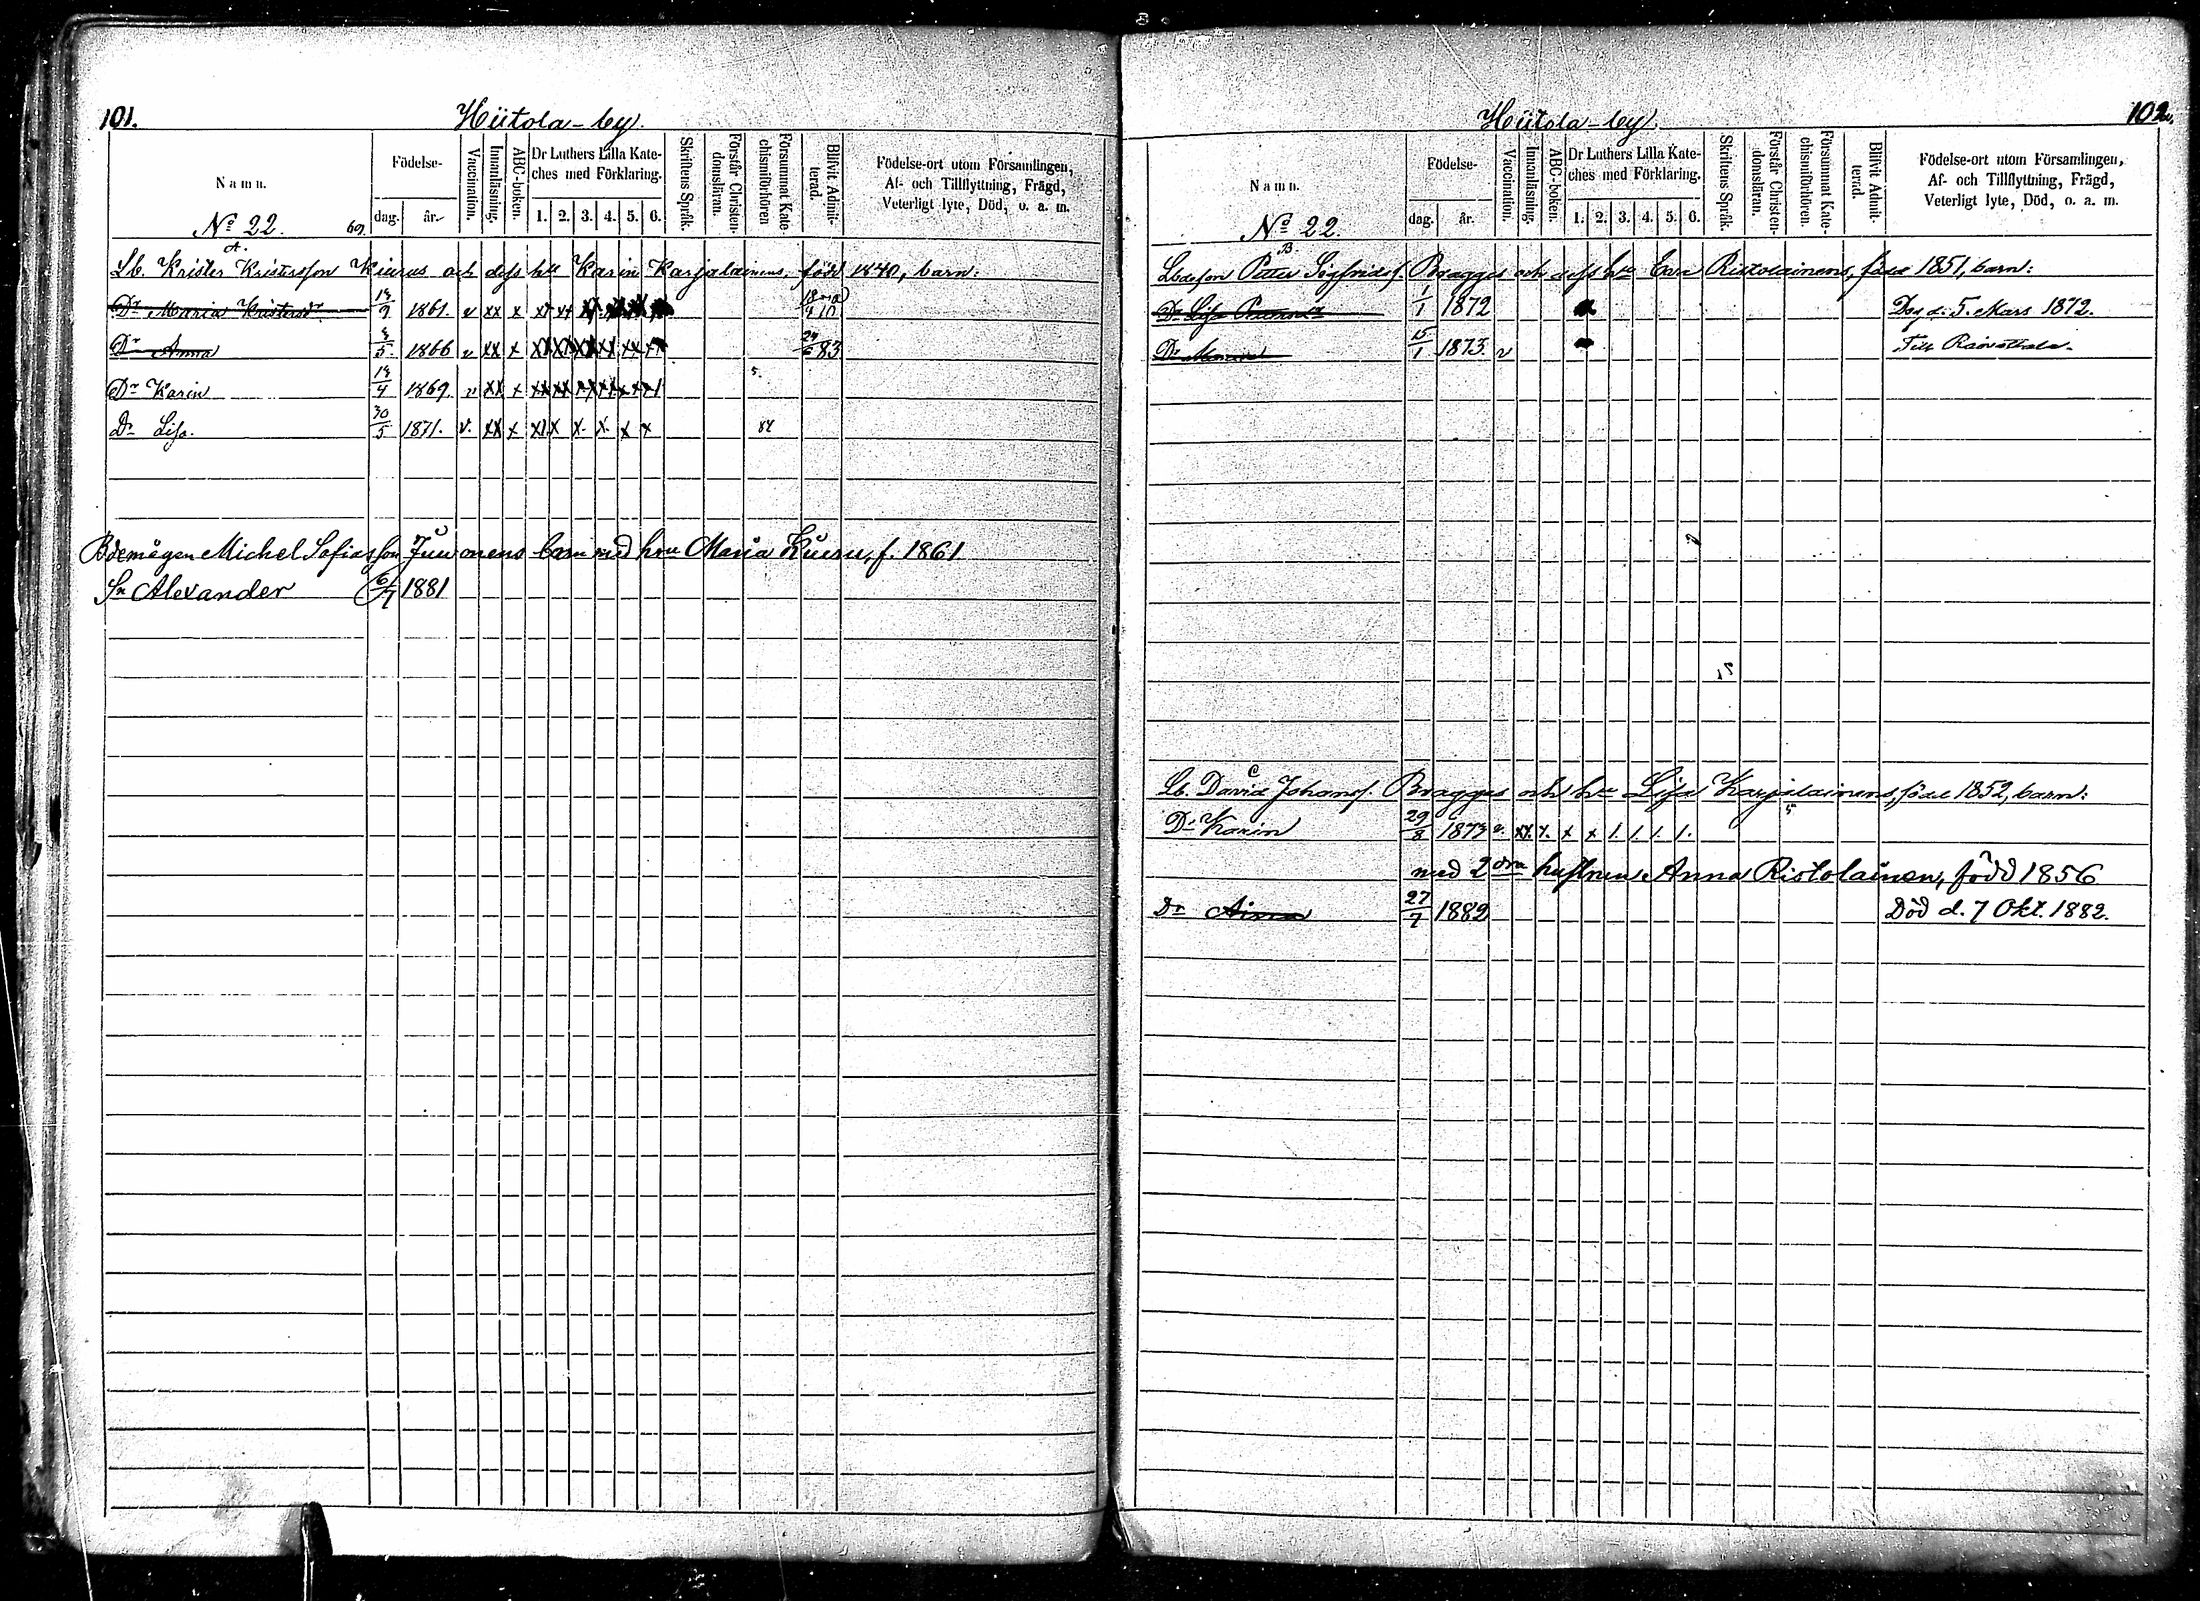 101.
Hiitola-by.
Namn.
Födelse-
dag.
år.
Vaccination.
Innanläsning.
ABC-boken.
Dr Luthers Lilla Kate-
ches med Förklaring.
1. 2. 3. 4. 5. 6.
Skriftens Språk.
Förstår Christen-
domsläran.
Försummat Kate-
chismiförhören
Blifvit Admit-
terad.
Födelse-ort utom Församlingen,
Af- och Tillflyttning, Frägd,
Veterligt lyte, Död, o. a. m.
No 22. 69.
A.
Lb. Krister Kristersson Kiurus och dess hu Karin Karjalainens, född 1840, barn:
Dr Maria Kristersdr 1861. v xx x
Dr Anna 5 1866 v xx x 83
Dr Karin 4 1869. v xx x 5.
Dr Lisa. 30/5 1871. v. xx x x1 x x. x. x x 84
Bdemågen Michel Sofiasson Juuonens barn med hru Maria Kiuru, f. 1861
Sn Alexander 6/7 1881
Hiitola-by.
102.
Namn.
Födelse-
dag.
år.
Vaccination.
Innanläsning.
ABC-boken.
Dr Luthers Lilla Kate-
ches med Förklaring.
1. 2. 3. 4. 5. 6.
Skriftens Språk.
Förstår Christen-
domsläran.
Försummat Kate-
chismiförhören.
Blifvit Admit-
terad.
Födelse-ort utom Församlingen,
Af- och Tillflyttning, Frägd,
Veterligt lyte, Död, o. a. m.
No 22.
B
Lbdesson Petter Sigfridss. Bragges och dess hu Eva Ristolainens, född 1851, barn:
Dr Lisa 1/1 1872 Dog d. 5. Mars 1872.
Dr 15/1 1873. v Till Räisälä.
C
Lb. David Johanss. Bragges och hu Lisa Karjalainens, född 1852, barn:
Dr Karin 29/8 1873 v. xx. x. x x 1. 1. 1. 1. 5
med 2dra hustrun Anna Ristolainen, född 1856.
Dr Aina 27/7 1882 Död d. 7 Okt. 1882.